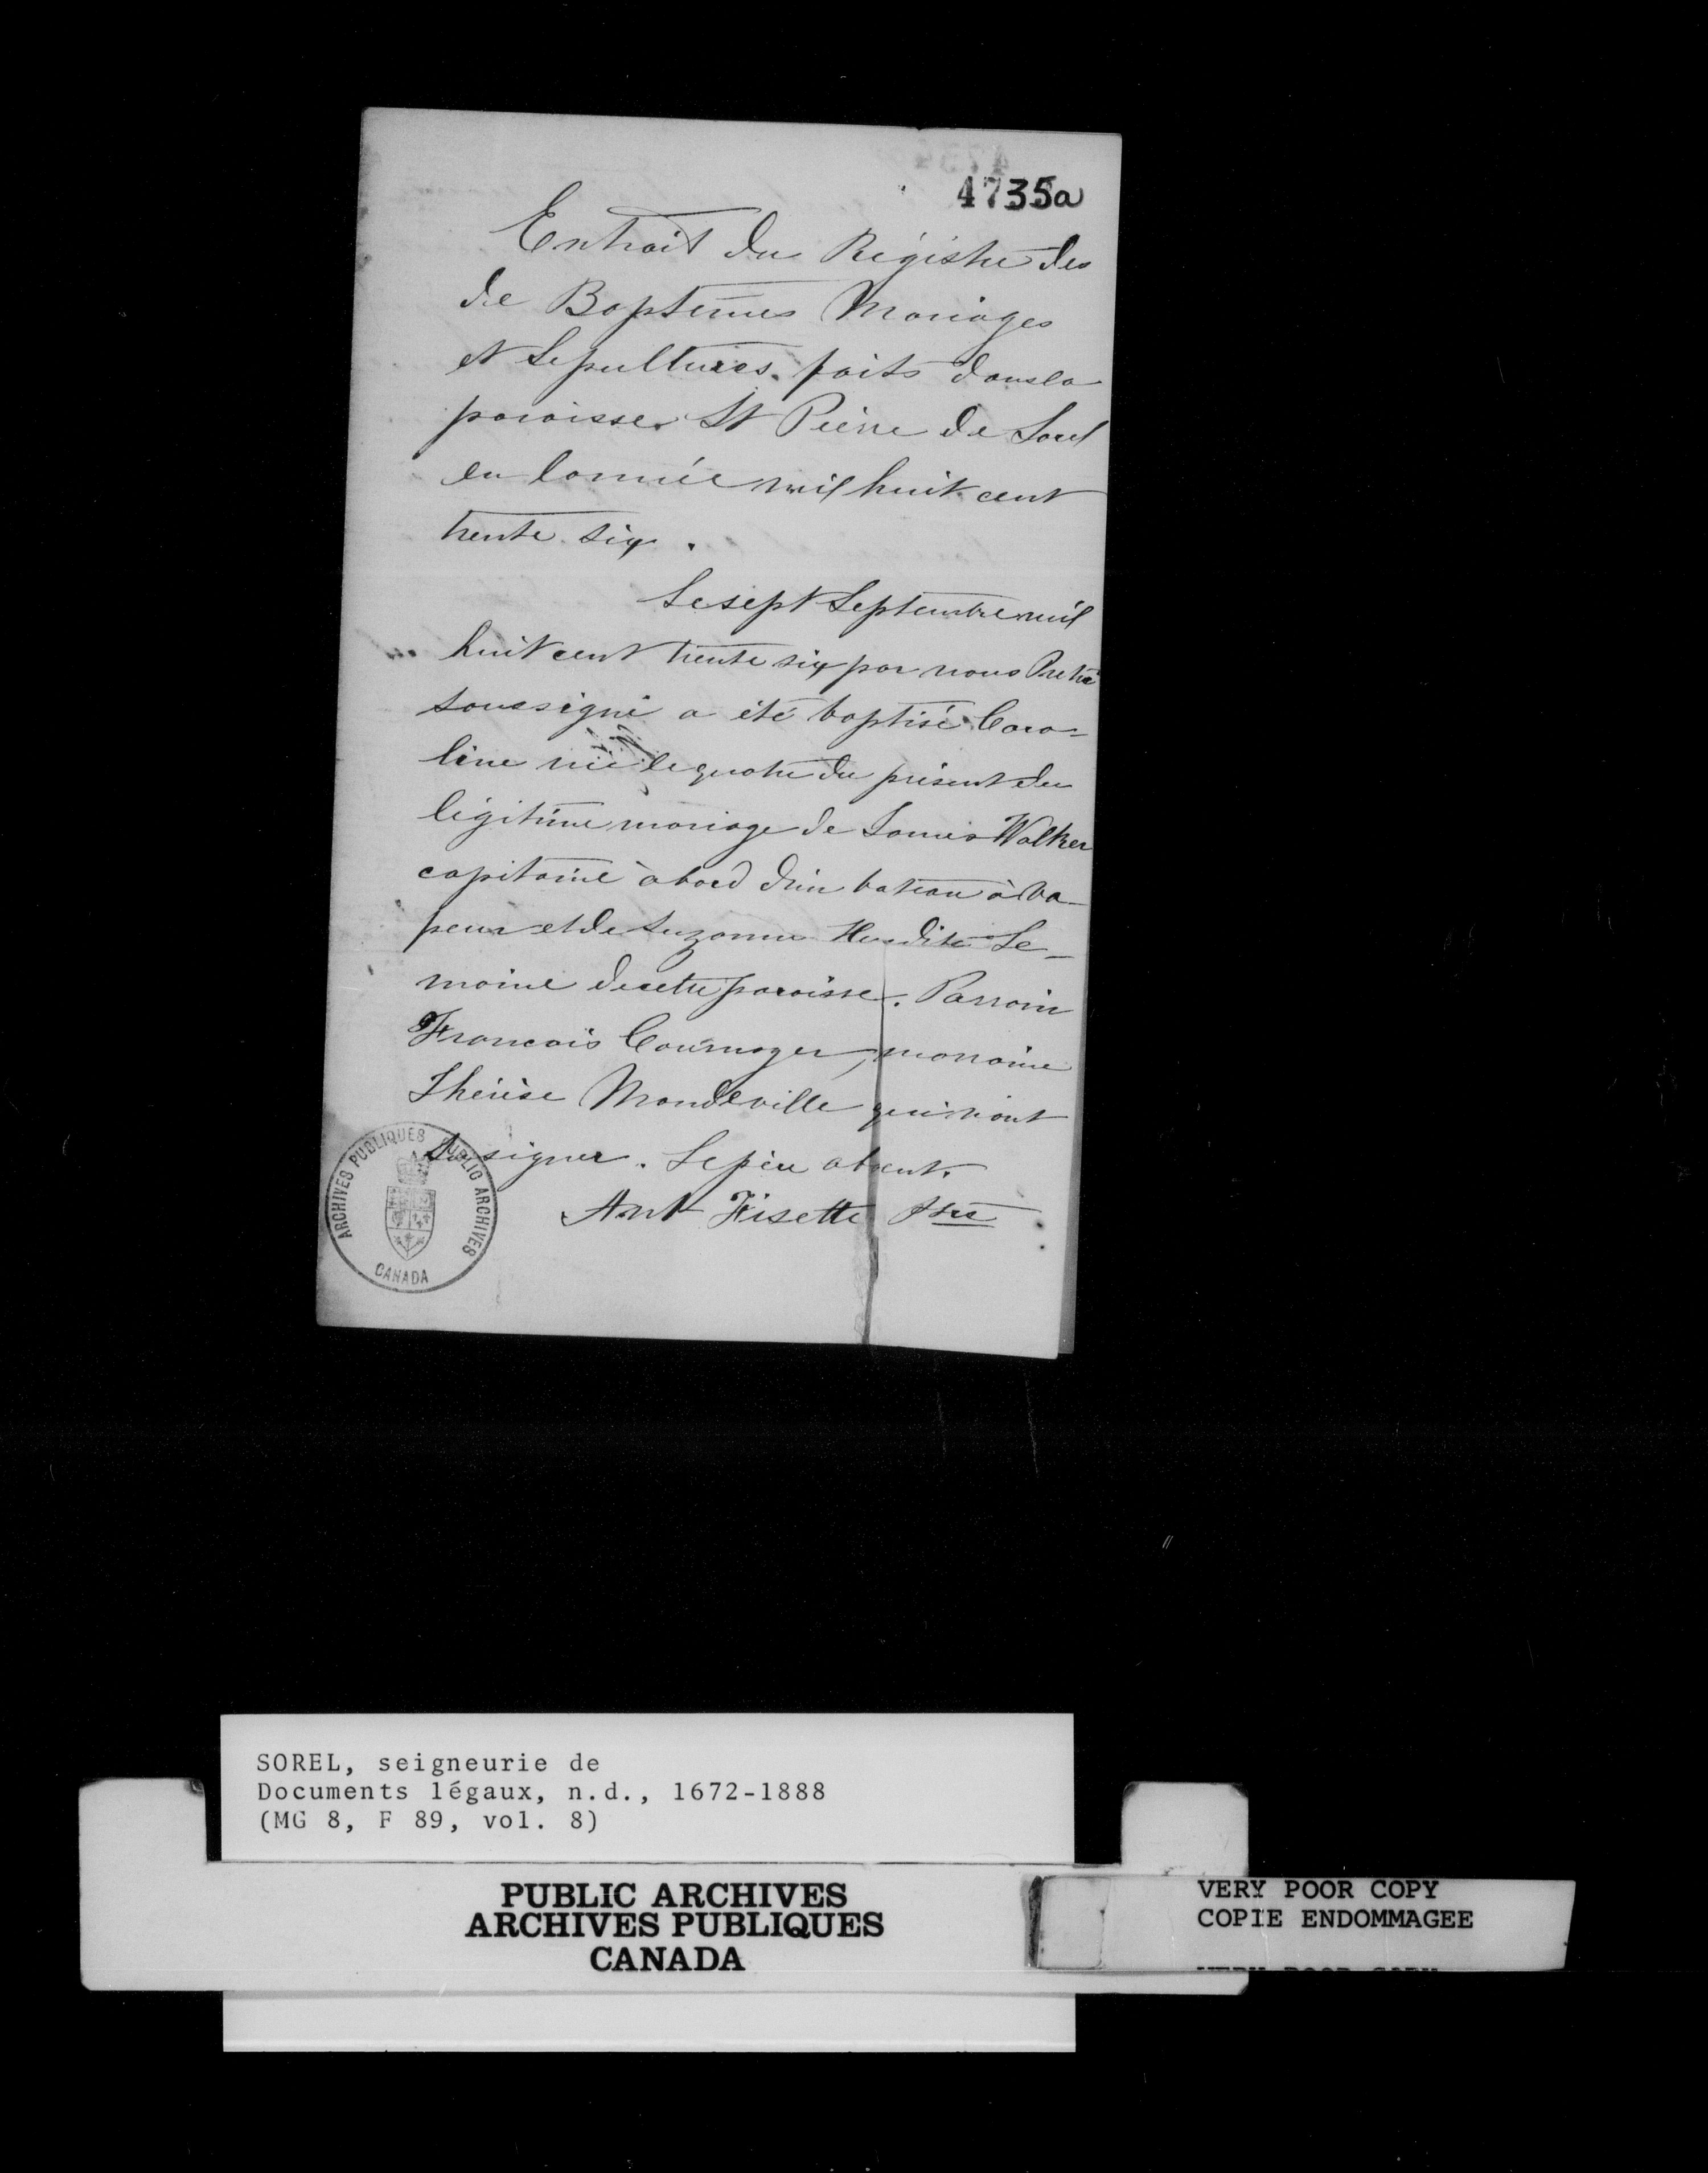 4735a
Extrait du Régistre des
de Baptemes Mariages
et Sepultures faits dans la
paroisse St Pierre de Sorel
en l'année mil huit cent
trente six.
Le sept Septembre mil
huit cent trente six par nous Pretre
soussigné a été baptisé Caro-
line née le quatre du présent du
légitime mariage de Walker
capitaine à bord d'un bateau à va-
peur et de Suzanne Hus dite Le-
moine de cette paroisse. Parrain
Francois Cournoyer, marraine
Thérèse Mandeville qui n'ont
su signer. Le père absent.
Ant Fisette Ptre
ARCHIVES PUBLIQUES PUBLIC ARCHIVES
CANADA
SOREL, seigneurie de
Documents légaux, n.d., 1672-1888
(MG 8, F 89, vol. 8)
PUBLIC ARCHIVES
ARCHIVES PUBLIQUES
CANADA
VERY POOR COPY
COPIE ENDOMMAGEE
VERY POOR COPY